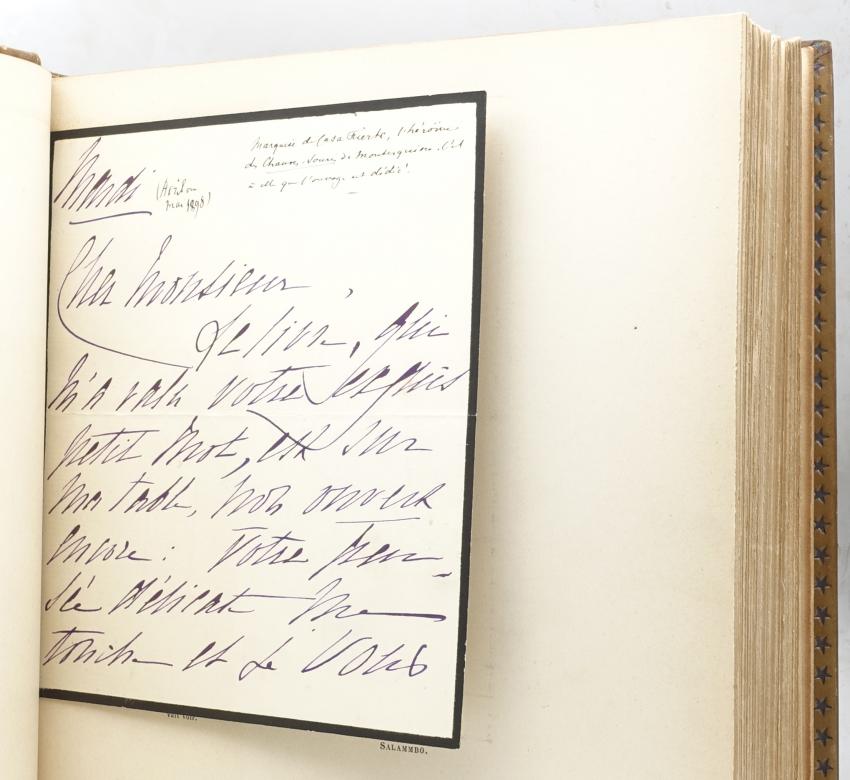 Mardi
mai 1898)
Marquise de Casa Fierte, l'héroïne
des Chauves-Souris de Montesquiou. C'est
à elle que l'ouvrage est dédié.
Cher Monsieur,
Le livre, qui
m'a valu votre exquis
petit mot, est sur
ma table, non ouvert
encore : votre pen-
sée délicate me
touche et je vous
SALAMMBO.